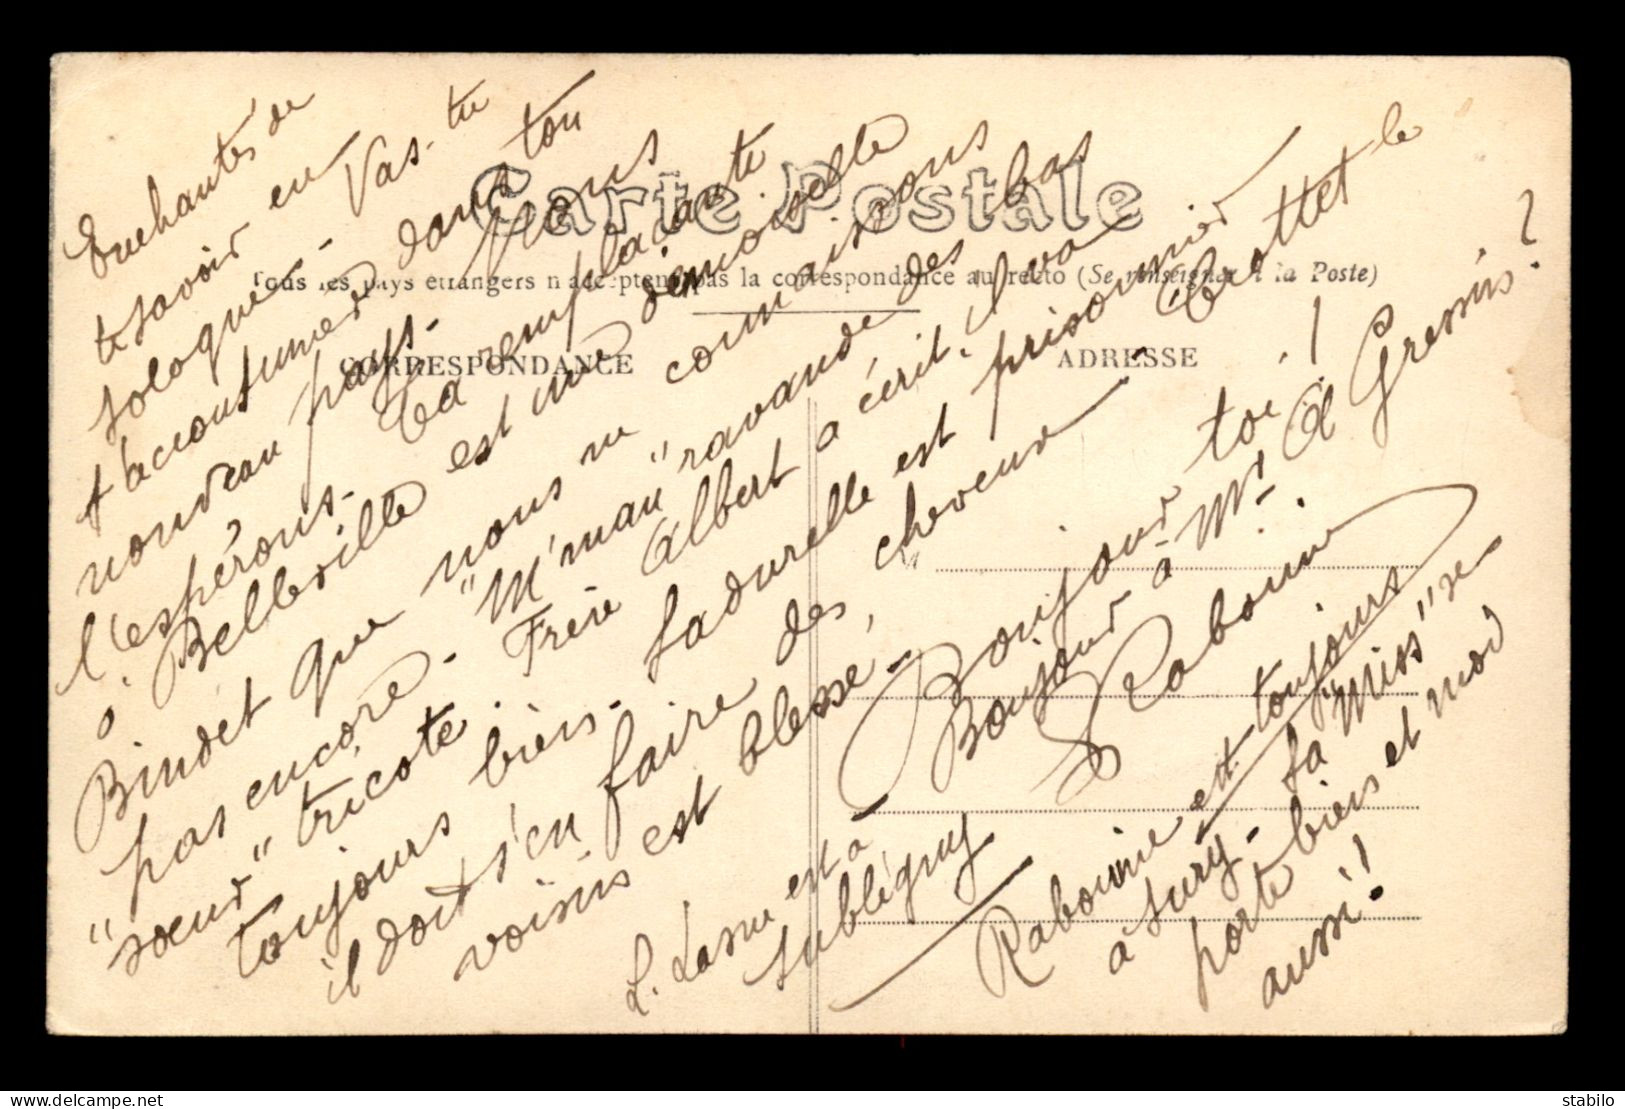 Enchantés de
te savoir en
Sologne. Vas-tu
t'accoutumer dans ton
nouveau pays. Nous
l'espérons. Ta remplaçante
à Belleville est une demoiselle
Bindet que nous ne connaissons
pas encore. "M'man" ravaude des bas
"soeur" tricote. Frère Albert a écrit, il va
toujours bien. Ladurelle est prisonnier
il doit s'en faire des cheveux. Trottet le
voisin est blessé,
L. Lasne est à
Sublégny
Bonjour toi!
Bonjour à Mr A Gressin?
S Rabouin
Rabouine est toujours
à Sury. La "Miss" se
porte bien et moi
aussi!
Carte Postale
Tous les pays étrangers n'acceptent pas la correspondance au recto (Se renseigner à la Poste)
CORRESPONDANCE
ADRESSE
stabilo